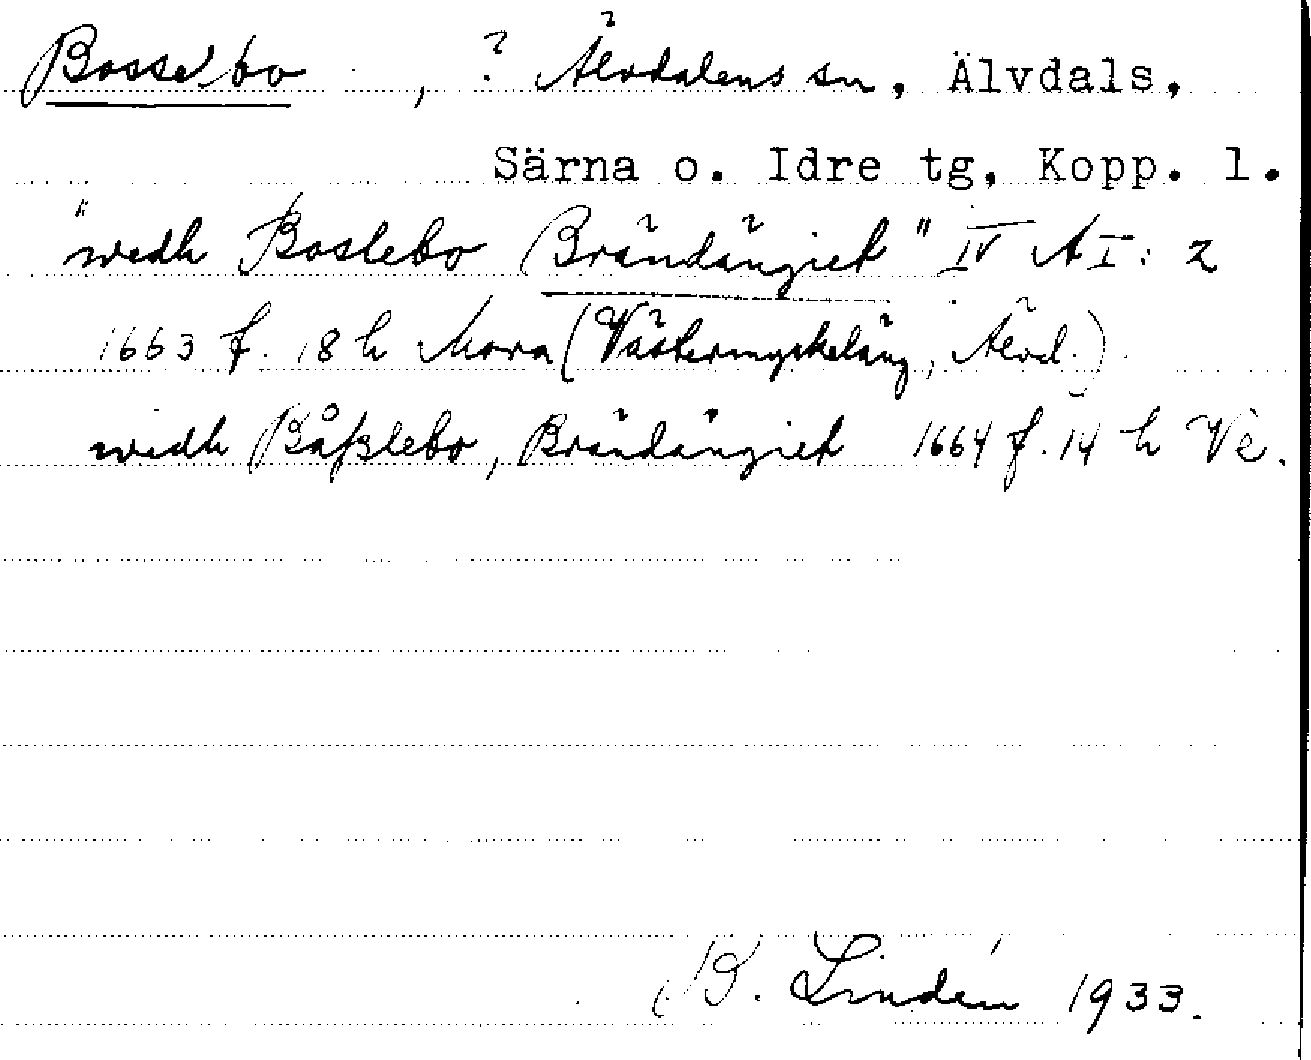 Bosselbo , ? Älvdalens sn, Älvdals,
Särna o. Idre tg, Kopp. l.
"wedh Boslebo (Brändängiet" IV A I: 2
1663 f. 18 h Mora (Västermyckeläng, Älvd.)
widh Båßlebo, Brändängiet 1664 f. 14 h Vz.
B. Lindén 1933.